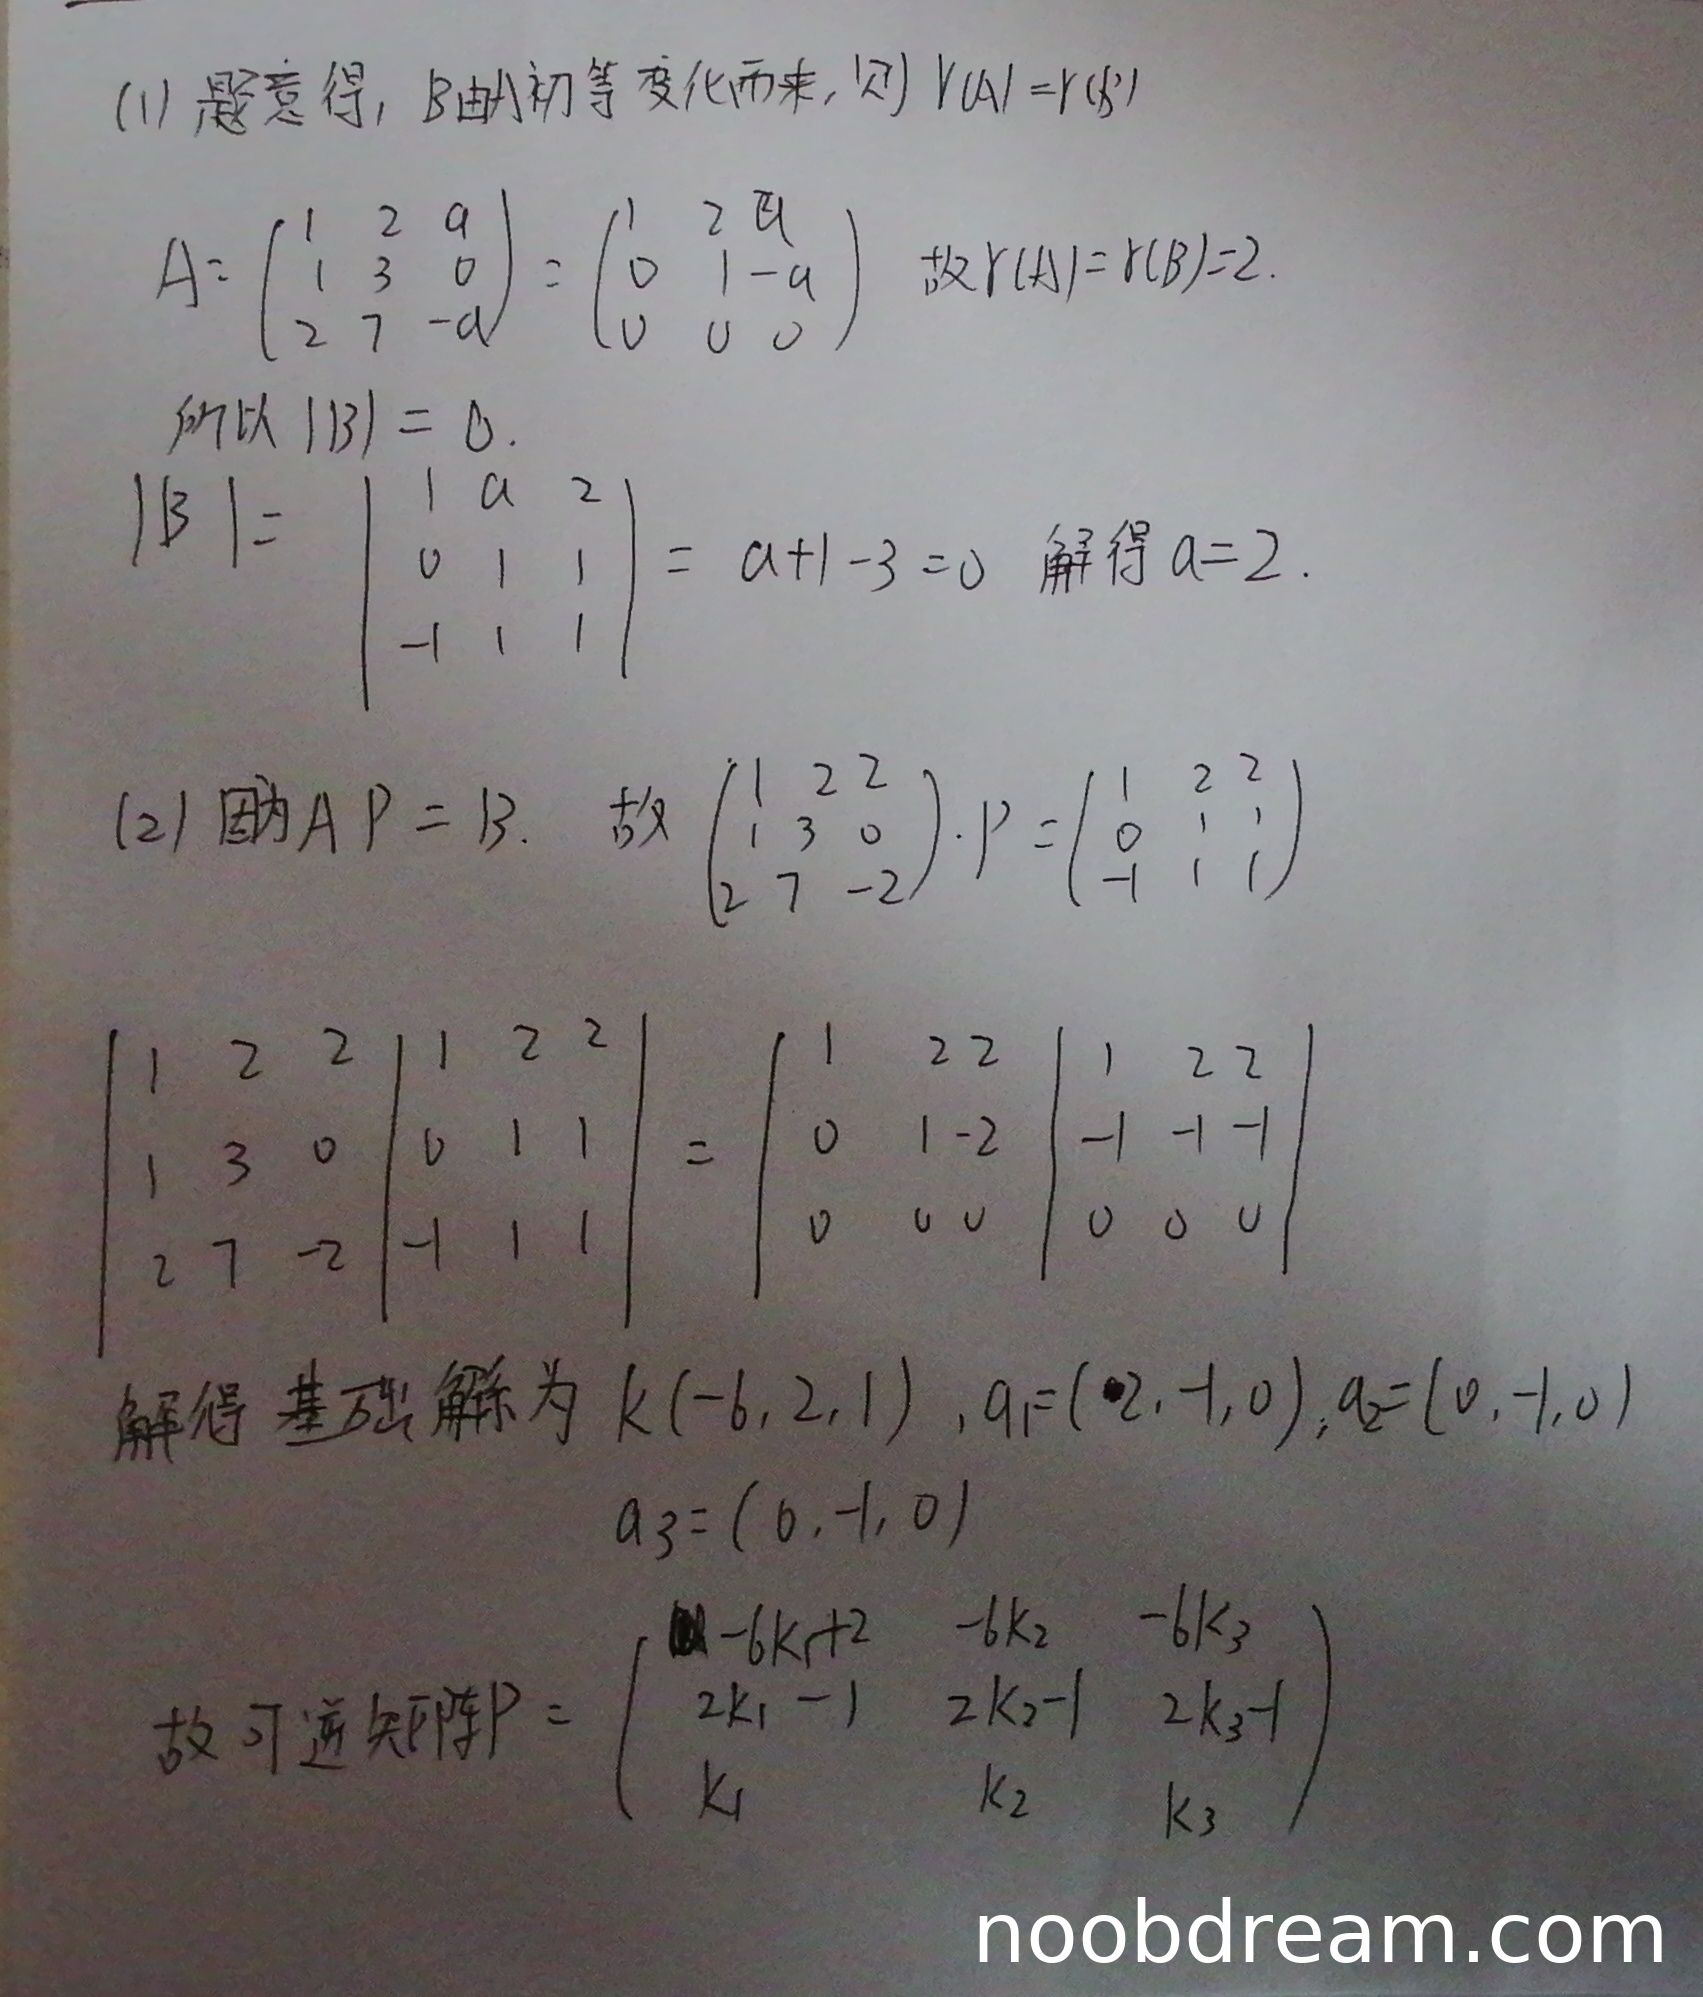 (1) 题意得, B由A初等变化而来, 则 r(A) = r(B)
A = (1 2 a / 1 3 0 / 2 7 -a) = (1 2 a / 0 1 -a / 0 0 0) 故 r(A) = r(B) = 2.
所以 |B| = 0.
|B| = |1 a 2 / 0 1 1 / -1 1 1| = a+1-3=0 解得 a=2.
(2) 因为 AP = B. 故 (1 2 2 / 1 3 0 / 2 7 -2) · P = (1 2 2 / 0 1 1 / -1 1 1)
|1 2 2 | 1 2 2| = |1 2 2 | 1 2 2|
|1 3 0 | 0 1 1| |0 1 -2 | -1 -1 -1|
|2 7 -2 | -1 1 1| |0 0 0 | 0 0 0|
解得 基础解系为 k(-6, 2, 1), a1=(2, -1, 0), a2=(0, -1, 0)
a3=(0, -1, 0)
故可逆矩阵P = (-6k1+2 -6k2 -6k3 / 2k1-1 2k2-1 2k3-1 / k1 k2 k3)
noobdream.com